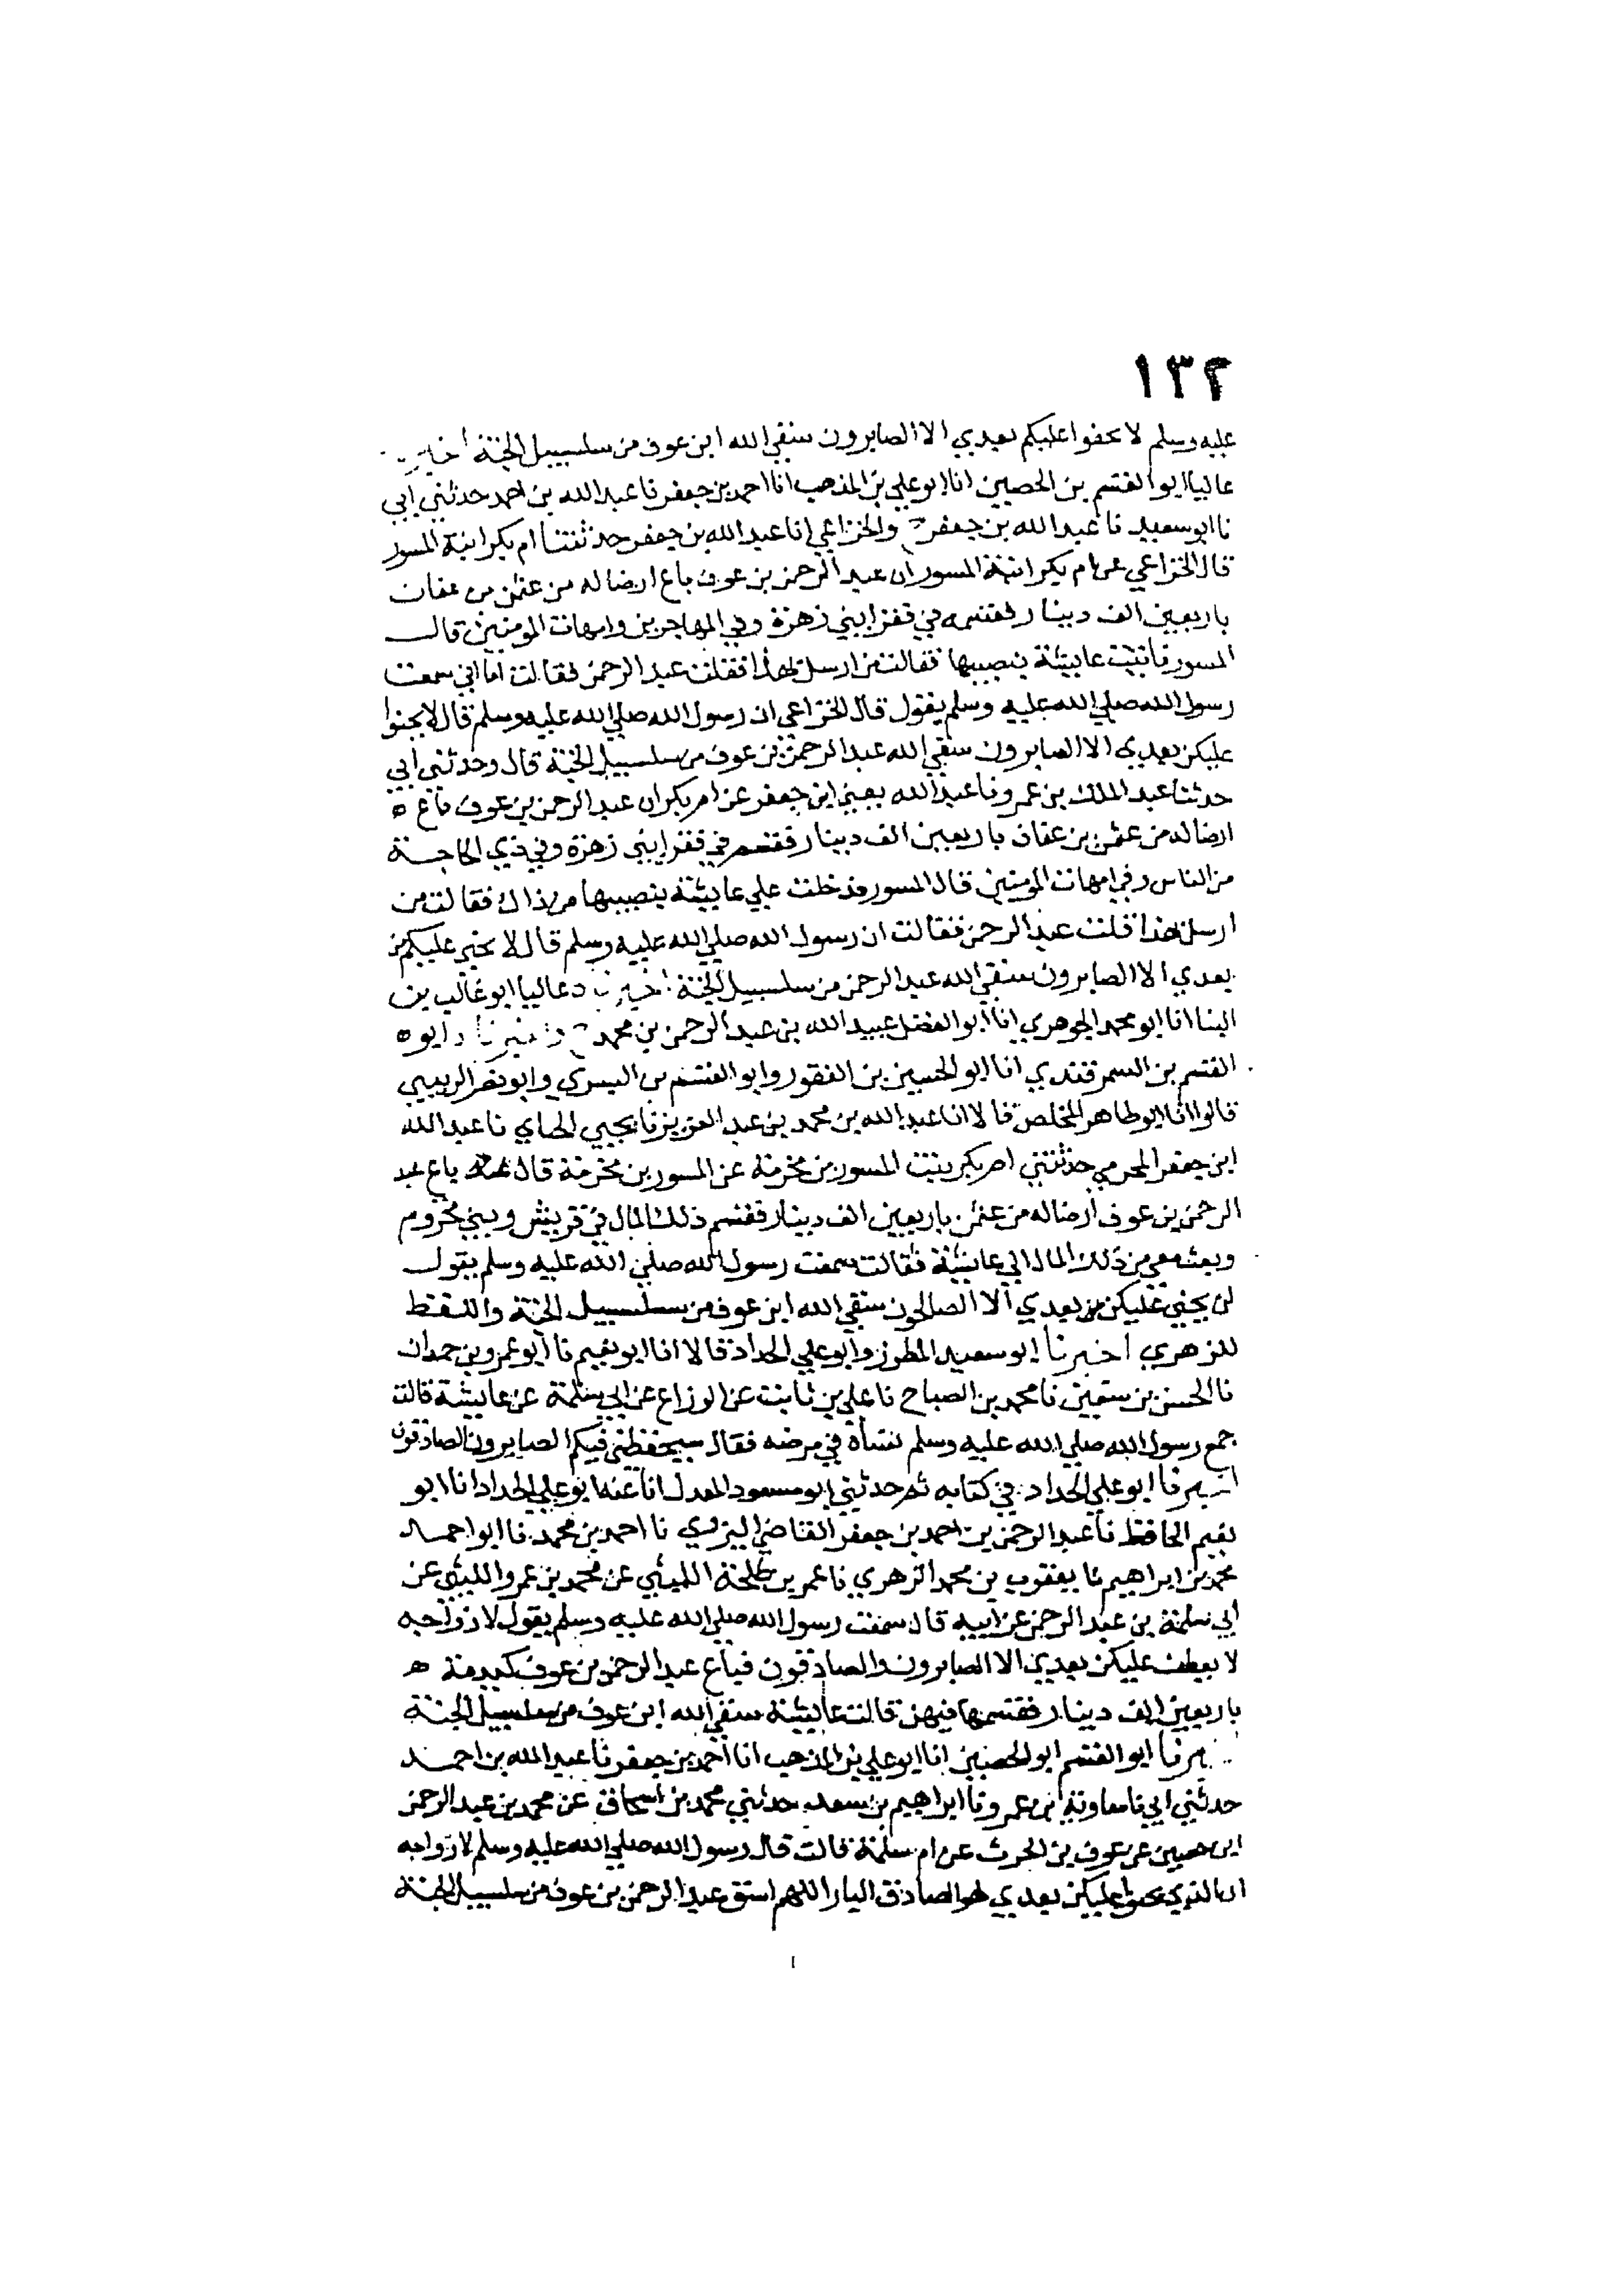 ١٣٢
عليه وسلم لا يحفوا عليكم بعدي الا الصابرون سقي الله ابن عوف من سلسبيل الجنة
عاليا ابو القسم بن الحصين انا ابو علي بن المذهب انا احمد بن جعفر نا عبد الله بن احمد حدثني ابي
نا ابو سعيد نا عبد الله بن جعفر ح والخزاعي انا عبد الله بن جعفر حدثتنا ام بكر ابنة المسور
قال الخزاعي عن ام بكر ابنة المسور ان عبد الرحمن بن عوف باع ارضا له من عثمن بن عفان
باربعين الف دينار فقسمه في فقرا بني زهرة وفي المهاجرين وامهات المومنين قال
المسور فاتيت عايشة بنصيبها فقالت من ارسل بهذا فقلت عبد الرحمن فقالت اما اني سمعت
رسول الله صلي الله عليه وسلم يقول قال الخزاعي ان رسول الله صلي الله عليه وسلم قال لا يحنوا
عليكن بعدي الا الصابرون سقي الله عبد الرحمن بن عوف من سلسبيل الجنة قال وحدثني ابي
حدثنا عبد الملك بن عمرو نا عبد الله يعني ابن جعفر عن ام بكر ان عبد الرحمن بن عوف باع ه
ارضا له من عثمن بن عفان باربعين الف دينار فقسم في فقرا بني زهرة وفي ذي الحاجة
من الناس وفي امهات المومنين قال المسور فدخلت علي عايشة بنصيبها من ذاك فقالت من
ارسل هذا قلت عبد الرحمن فقالت ان رسول الله صلي الله عليه وسلم قال لا عليكم من
بعدي الا الصابرون سقي الله عبد الرحمن من سلسبيل الجنة عاليا ابو غالب بن
البنا انا ابو محمد الجوهري انا ابو الفضل عبيد الله بن عبد الرحمن بن محمد ح ابو ه
القسم بن السمرقندي انا ابو الحسين بن النقور وابو القسم بن البسري وابو نصر الزينبي
قالوا انا ابو طاهر المخلص قالا انا عبد الله بن محمد بن عبد العزيز نا يحيي الحماي نا عبد الله
ابن جعفر المخرمي حدثتني ام بكر بنت المسور بن مخرمة عن المسور بن مخرمة قال باع عبد
الرحمن بن عوف ارضا له من عثمن باربعين الف دينار فقسم ذلك المال في قريش وبني مخزوم
وبعث معي من ذلك المال الي عايشة فقالت سمعت رسول الله صلي الله عليه وسلم يقول
لن يحني عليكن من بعدي الا الصالحون سقي الله ابن عوف من سلسبيل الجنة واللفظ
للزهري اخبرنا ابو سعيد المطرز وابو علي الحداد قالا انا ابو نعيم نا ابو عمرو بن حمدان
نا الحسن بن سفين نا محمد بن الصباح نا علي بن ثابت عن الوزاع عن ابي سلمة عن عايشة قالت
جمع رسول الله صلي الله عليه وسلم نساه في مرضه فقال سيحفظني فيكم الصابرون الصادقون
ابو علي الحداد في كتابه ثم حدثني ابو مسعود المعدل انا عنه ابو علي الحداد انا ابو
نعيم الحافظ نا عبد الرحمن بن احمد بن جعفر القاضي اليزدي نا احمد بن محمد نا ابو احمد
محمد بن ابراهيم نا يعقوب بن محمد الزهري نا عمر بن طلحة الليثي عن محمد بن عمرو الليثي عن
ابي سلمة بن عبد الرحمن عن ابيه قال سمعت رسول الله صلي الله عليه وسلم يقول لازواجه
لا يعطف عليكن بعدي الا الصابرون والصادقون فباع عبد الرحمن بن عوف كيدمة ه
باربعين الف دينار فقسمها فيهن قالت عايشة سقي الله ابن عوف من سلسبيل الجنة
ابو القسم ابو الحصين انا ابو علي بن المذهب انا احمد بن جعفر نا عبد الله بن احمد
حدثني ابي نا معاوية بن عمرو نا ابراهيم بن سعد حدثني محمد بن اسحاق عن محمد بن عبد الرحمن
ابن حصين عن عوف بن الحرث عن ام سلمة قالت قال رسول الله صلي الله عليه وسلم لازواجه
ان الذي يحنوا عليكن بعدي لهو الصادق البار اللهم اسق عبد الرحمن بن عوف من سلسبيل الجنة